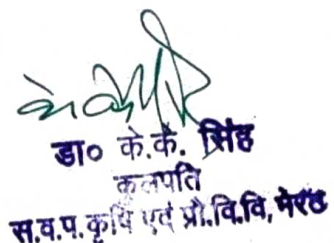 डा० के.के. सिंह
कुलपति
स.व.प. कृषि एवं प्रौ.वि.वि, मेरठ